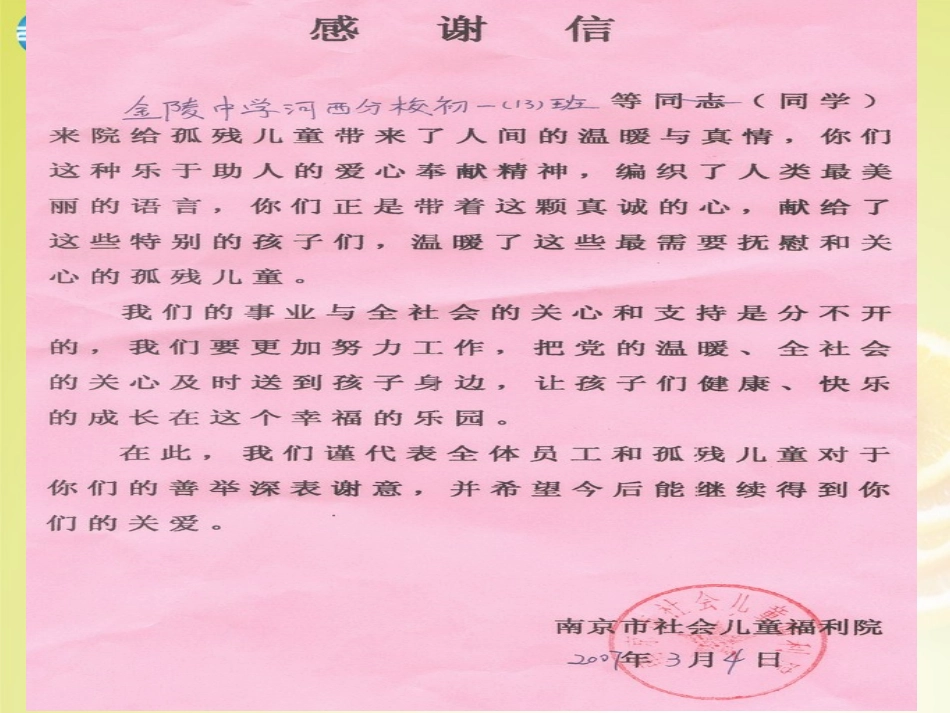 感谢信
金陵中学河西分校初一(13)班等同志(同学)
来院给孤残儿童带来了人间的温暖与真情，你们
这种乐于助人的爱心奉献精神，编织了人类最美
丽的语言，你们正是带着这颗真诚的心，献给了
这些特别的孩子们，温暖了这些最需要抚慰和关
心的孤残儿童。
我们的事业与全社会的关心和支持是分不开
的，我们要更加努力工作，把党的温暖、全社会
的关心及时送到孩子身边，让孩子们健康、快乐
的成长在这个幸福的乐园。
在此，我们谨代表全体员工和孤残儿童对于
你们的善举深表谢意，并希望今后能继续得到你
们的关爱。
南京市社会儿童福利院
2007年3月4日